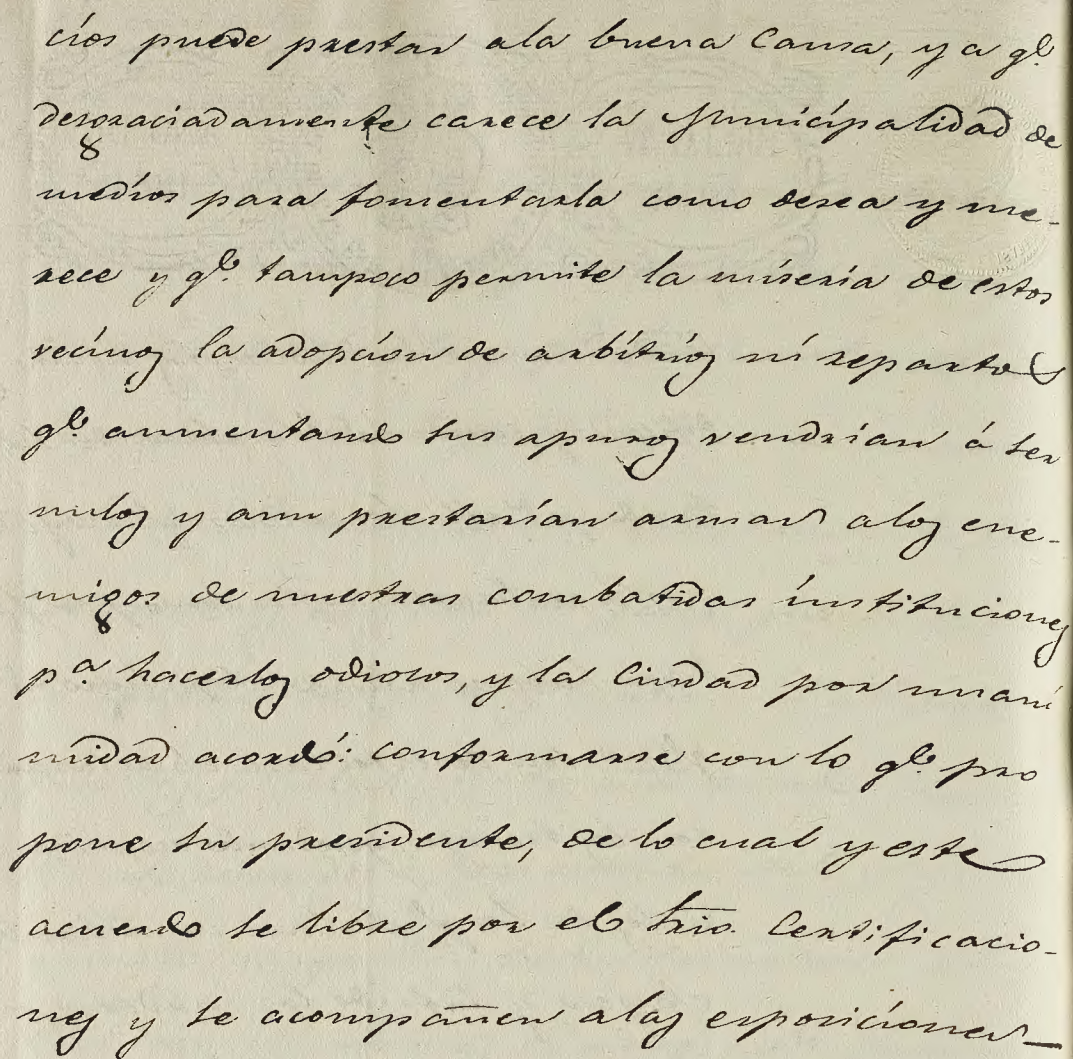 cíos puede prestar ala buena Causa, y a qe.
desgraciadamente carece la Municipalidad de
medios para fomentarla como desea y me-
rece y qe. tampoco permite la miseria de estos
vecinos la adopcion de arbitrios ni repartos
qe. aumentando sus apuros vendrían á ser
nulos y aun prestarían armas alos ene-
migos de nuestras combatidas instituciones
pa. hacerlos odiosos, y la Ciudad por unani
midad acordó: conformarse con lo qe. pro
pone su presidente, de lo cual y este
acuerdo se libre por el Srio. Certificacio-
nes y se acompañen alas esposiciones